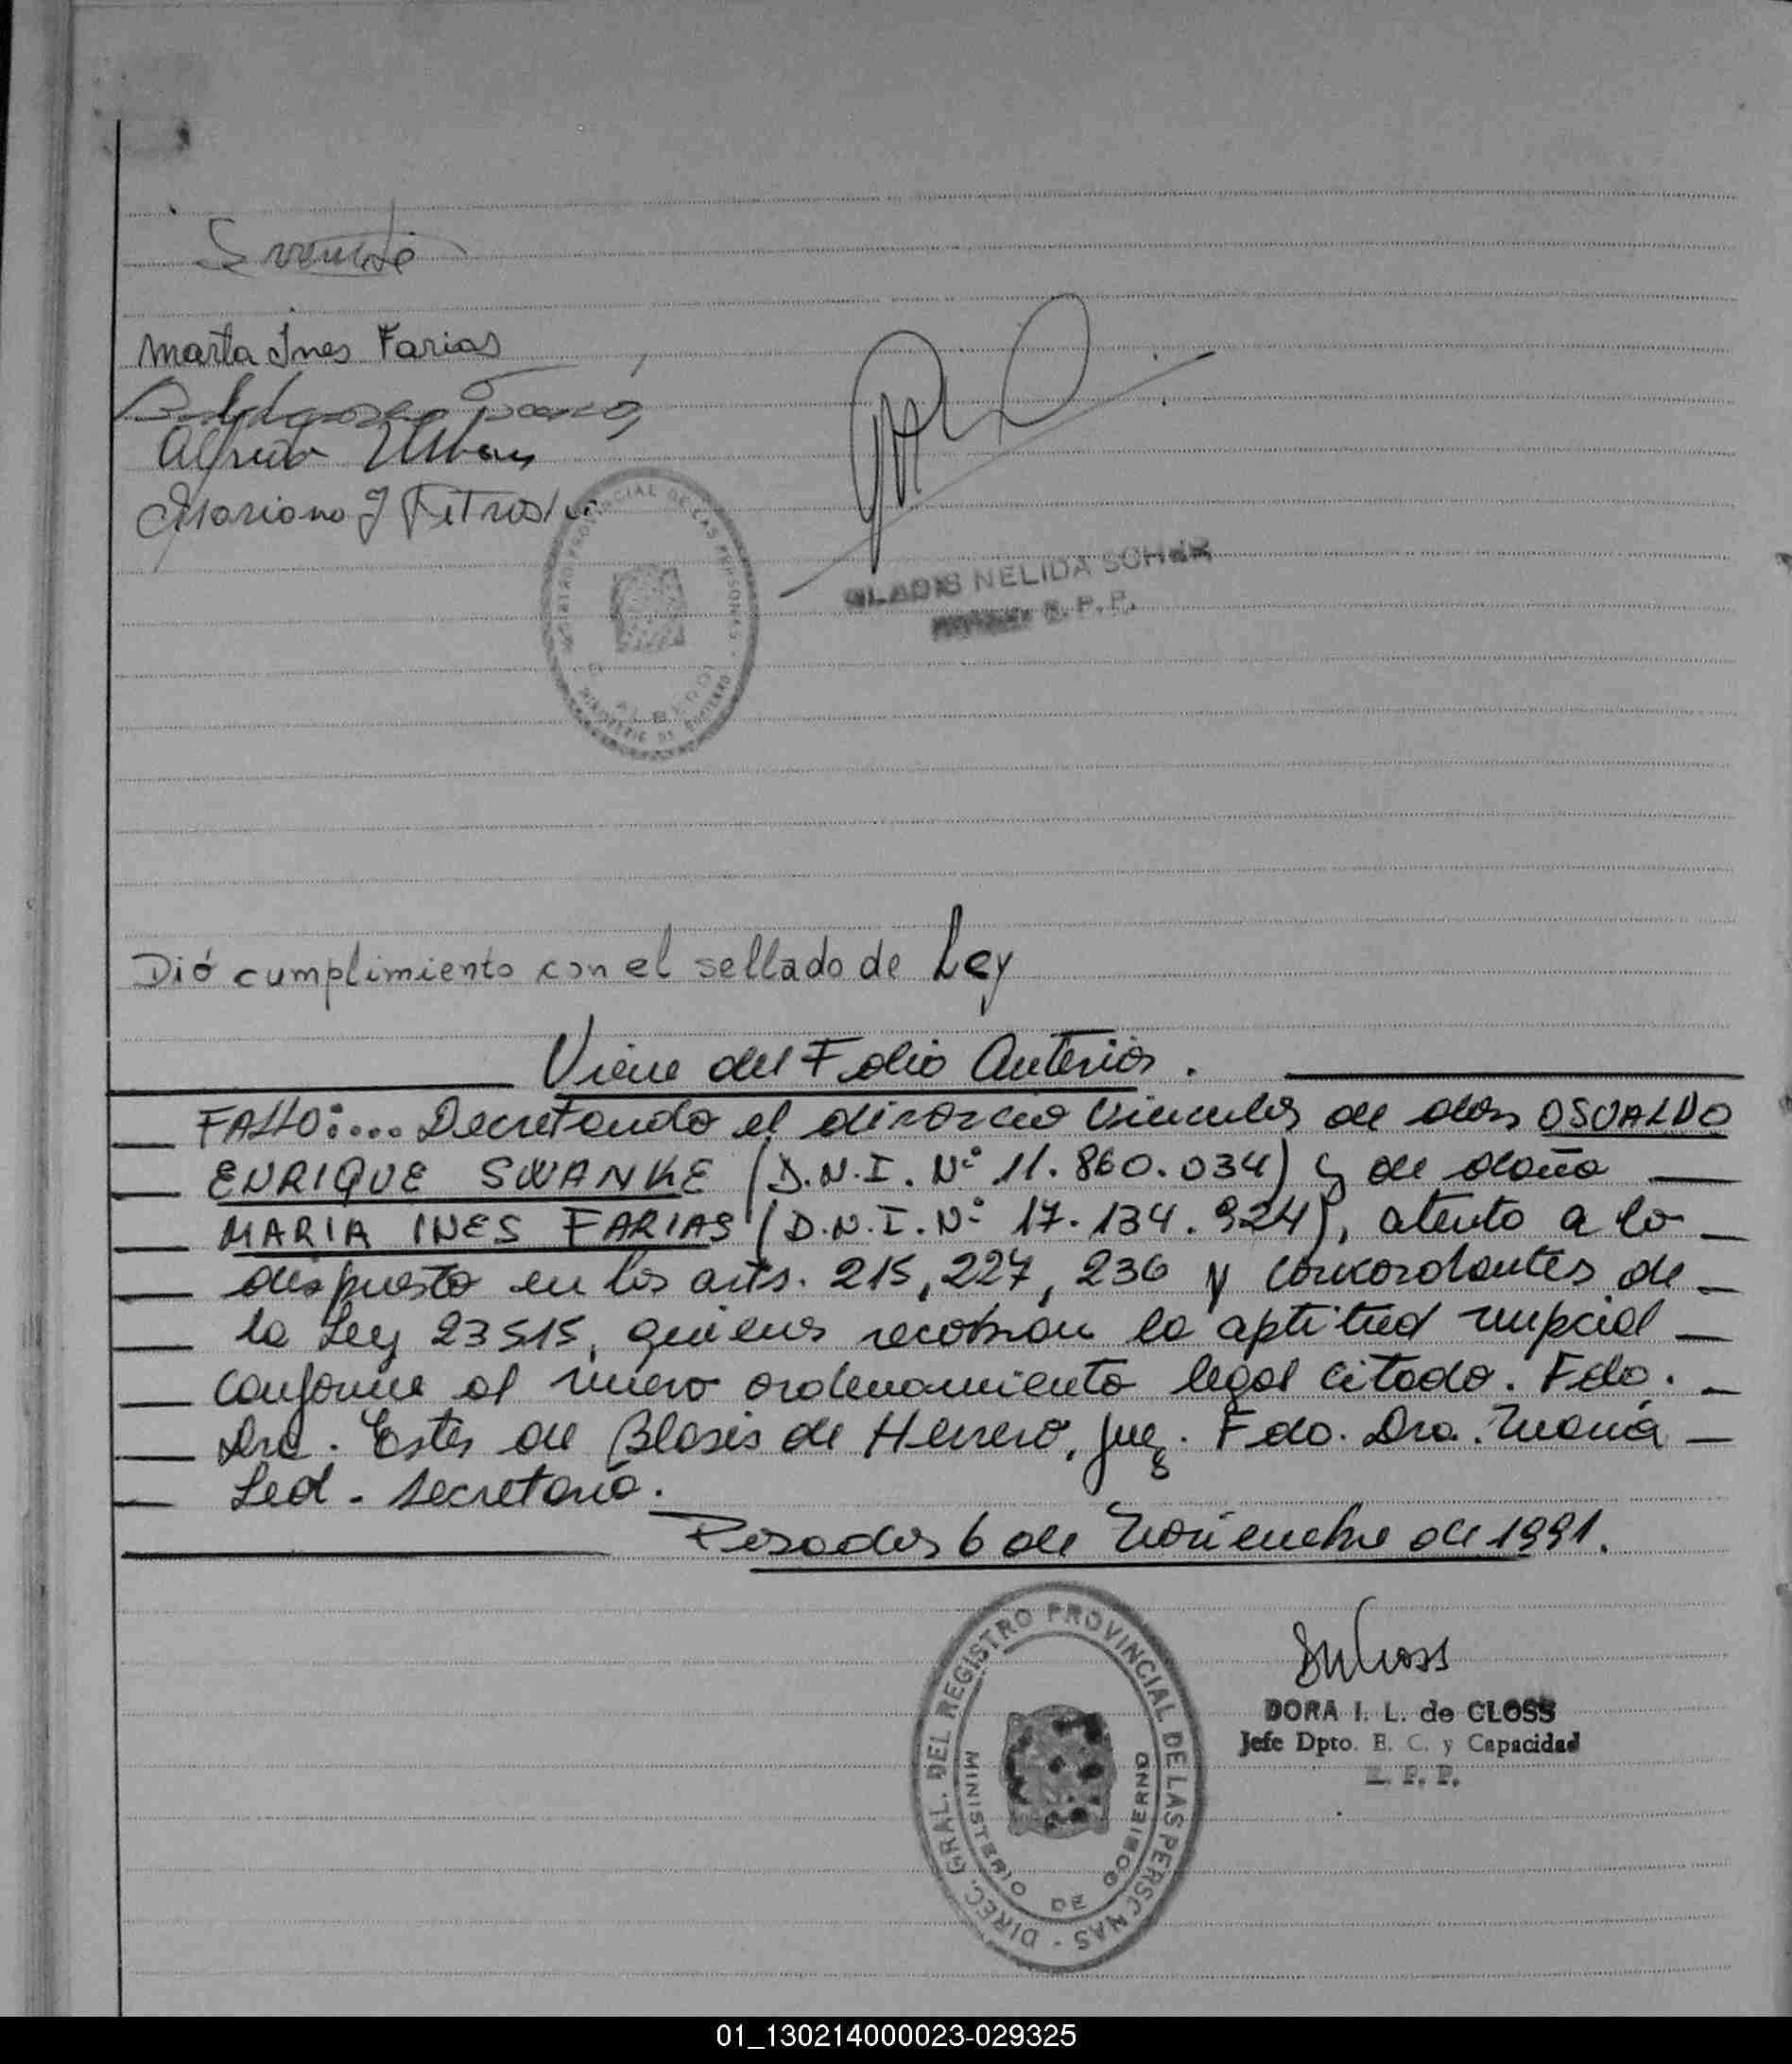 Marta Ines Farias
Alfredo
Mariano J
REGISTRO PROVINCIAL DE LAS PERSONAS -
MINISTERIO DE GOBIERNO
GLADIS NELIDA SCHER
R. P. P.
Dió cumplimiento con el sellado de Ley
Viene del Folio Anterior.
FALLO:... Decretando el divorcio vincular de don OSVALDO
ENRIQUE SWANKE (D.N.I. Nº 11.860.034) y de doña
MARIA INES FARIAS (D.N.I. Nº 17.134.924), atento a lo
dispuesto en los arts. 215, 227, 236 y concordantes de
la Ley 23515, quienes recobran la aptitud nupcial
conforme al nuevo ordenamiento legal citado. Fdo.
Dra. Ester de Blasis de Herrero, Juez. Fdo. Dra. María
Leal - Secretaria.
Posadas 6 de Noviembre de 1991.
DIREC. GRAL. DEL REGISTRO PROVINCIAL DE LAS PERSONAS -
MINISTERIO DE GOBIERNO
DORA I. L. de CLOSS
Jefe Dpto. E. C. y Capacidad
R. P. P.
01_130214000023-029325